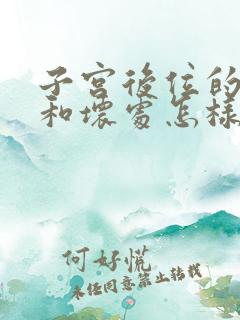 子宫後位的
和壞處怎樣
何好慌
未经同意禁止转载